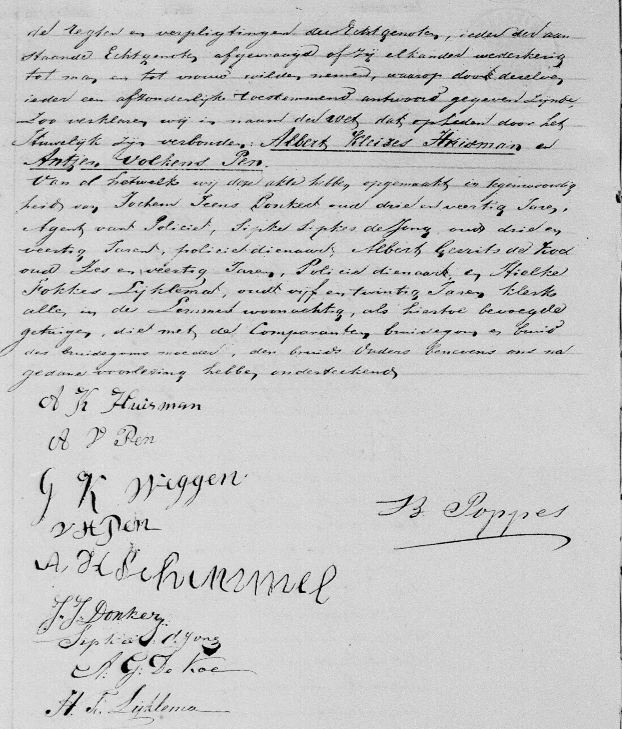 de regten en verpligtingen der Echtgenoten, ieder der aan
staande Echtgenoten afgevraagd of zij elkander wederkeerig
tot man en tot vrouw wilden nemen, waarop door dezelven
ieder een afzonderlijke toestemmend antwoord gegeven zijnde,
Zoo verklaren wij in naam der wet dat op heden door het
Huwelijk zijn verbonden: Albert Kleizes Huisman en
Antjen Volkens Pen.
Van al hetwelk wij deze akte hebben opgemaakt in tegenwoordig
heid van Jochem Donker oud drie en veertig Jaren,
Agent van Policie, Sipke Sipkes de Jong, oud drie en
veertig Jaren, policie dienaar, Albert Gerrits de Koe
oud Zes en veertig Jaren, Policie dienaar, en Hielke
Fokkes Lijklema, oud vijf en twintig Jaren, klerk
alle, in de Lemmer woonachtig, als hiertoe bevoegde
getuigen, die met de Comparanten bruidegom en bruid
des bruidegoms moeder, der bruids Ouders benevens ons na
gedane voorlezing hebben onderteekend,
A K Huisman
A V Pen
G K Wiggen
V H Pen
B. Poppes
A H Schimmel
J. J. Donker
Sipke S. d. Jong
A. G. De Koe
H. F. Lijklema